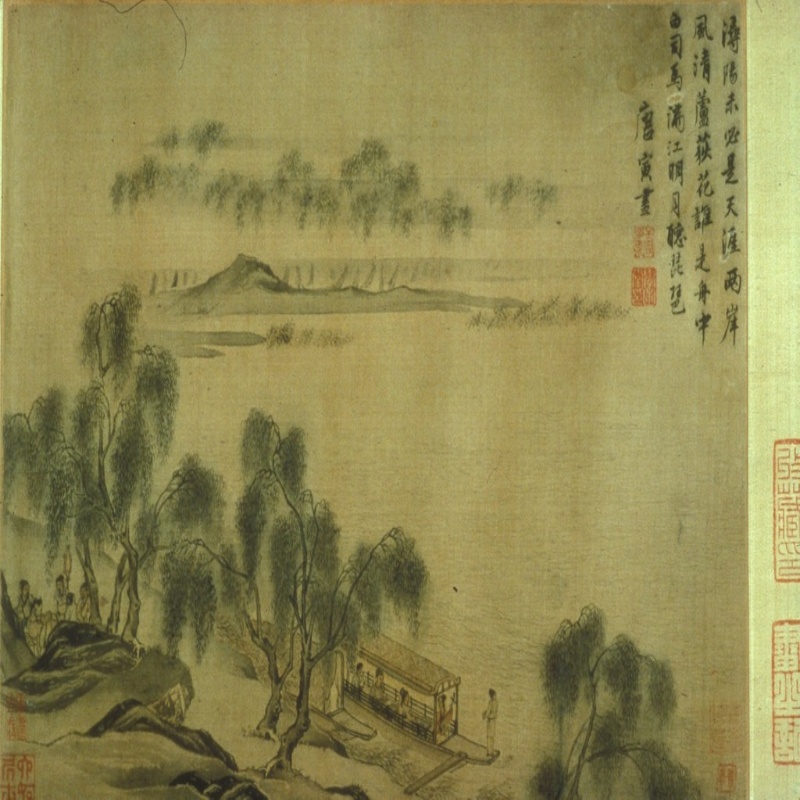 潯陽未必是天涯兩岸
風清蘆荻花誰是舟中
白司馬滿江明月聽琵琶
唐寅畫